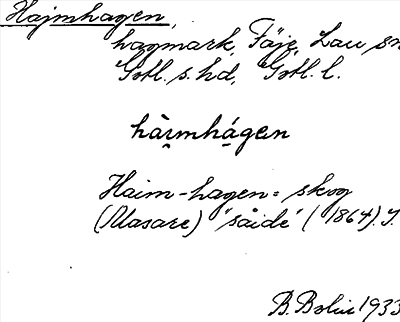 Hajmhagen,
hagmark, Fäje, Lau sn
Gotl. s. hd, Gotl. l.
hàr̥mhá̤gen
Haim-hagen = skog
(Masare) "såide" (1864). J.
B. Bolin 1933